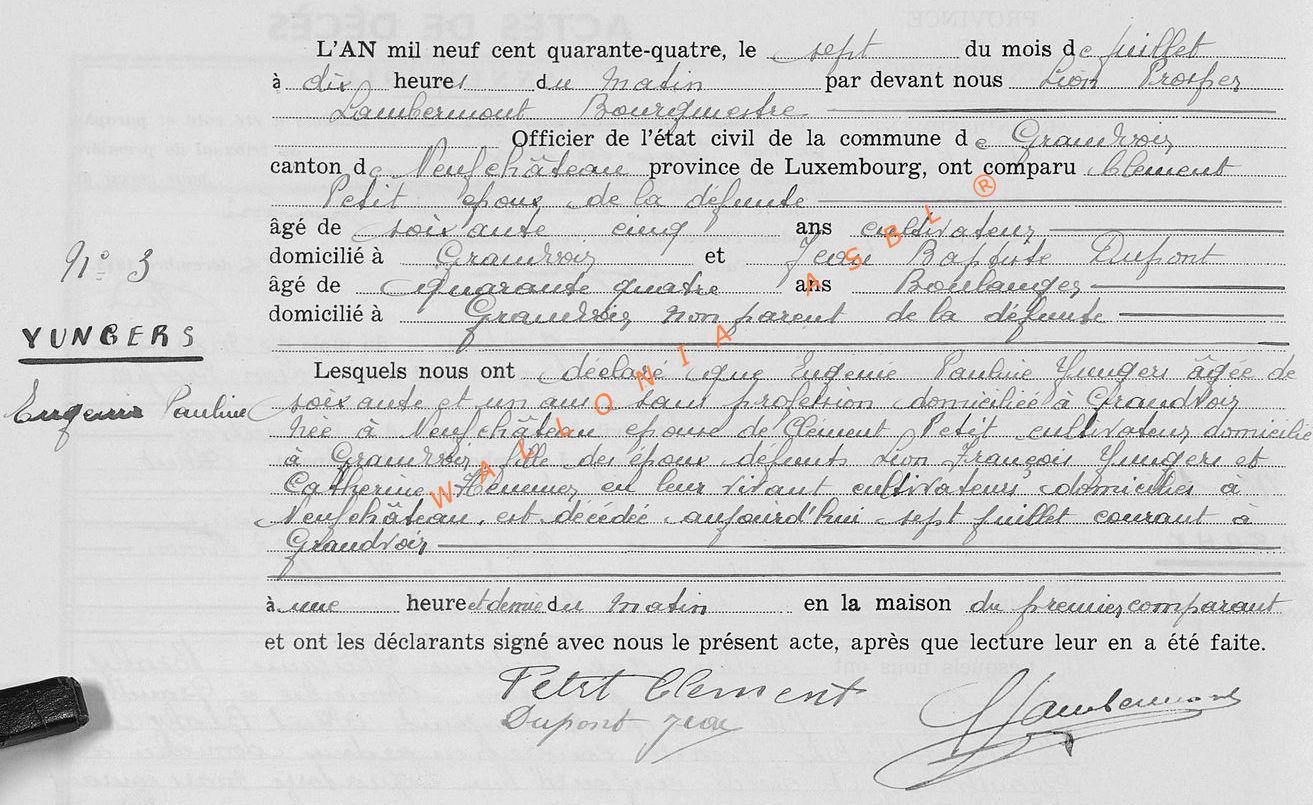 L'AN mil neuf cent quarante-quatre, le sept du mois de juillet
à dix heures du matin par devant nous Léon Prosper
Lambermont Bourgmestre
Officier de l'état civil de la commune de Grandvoir
canton de Neufchâteau province de Luxembourg, ont comparu Clément
Petit époux de la défunte
âgé de soixante cinq ans cultivateur
domicilié à Grandvoir et Jean Baptiste Dupont
N° 3
âgé de quarante quatre ans Boulanger
domicilié à Grandvoir, non parent de la défunte
YUNGERS
Eugenie Pauline
Lesquels nous ont déclaré que Eugenie Pauline Yungers âgée de
soixante et un ans, sans profession domiciliée à Grandvoir
née à Neufchâteau épouse de Clément Petit cultivateur domicilié
à Grandvoir, fille des époux défunts Léon François Yungers et
Catherine en leur vivant cultivateurs domiciliés à
Neufchâteau, est décédée aujourd'hui sept juillet courant à
Grandvoir
à une heure et demie du matin en la maison du premier comparant
et ont les déclarants signé avec nous le présent acte, après que lecture leur en a été faite.
Petit Clement
Dupont Jean
Lambermont
WALLONIA ASBL ®